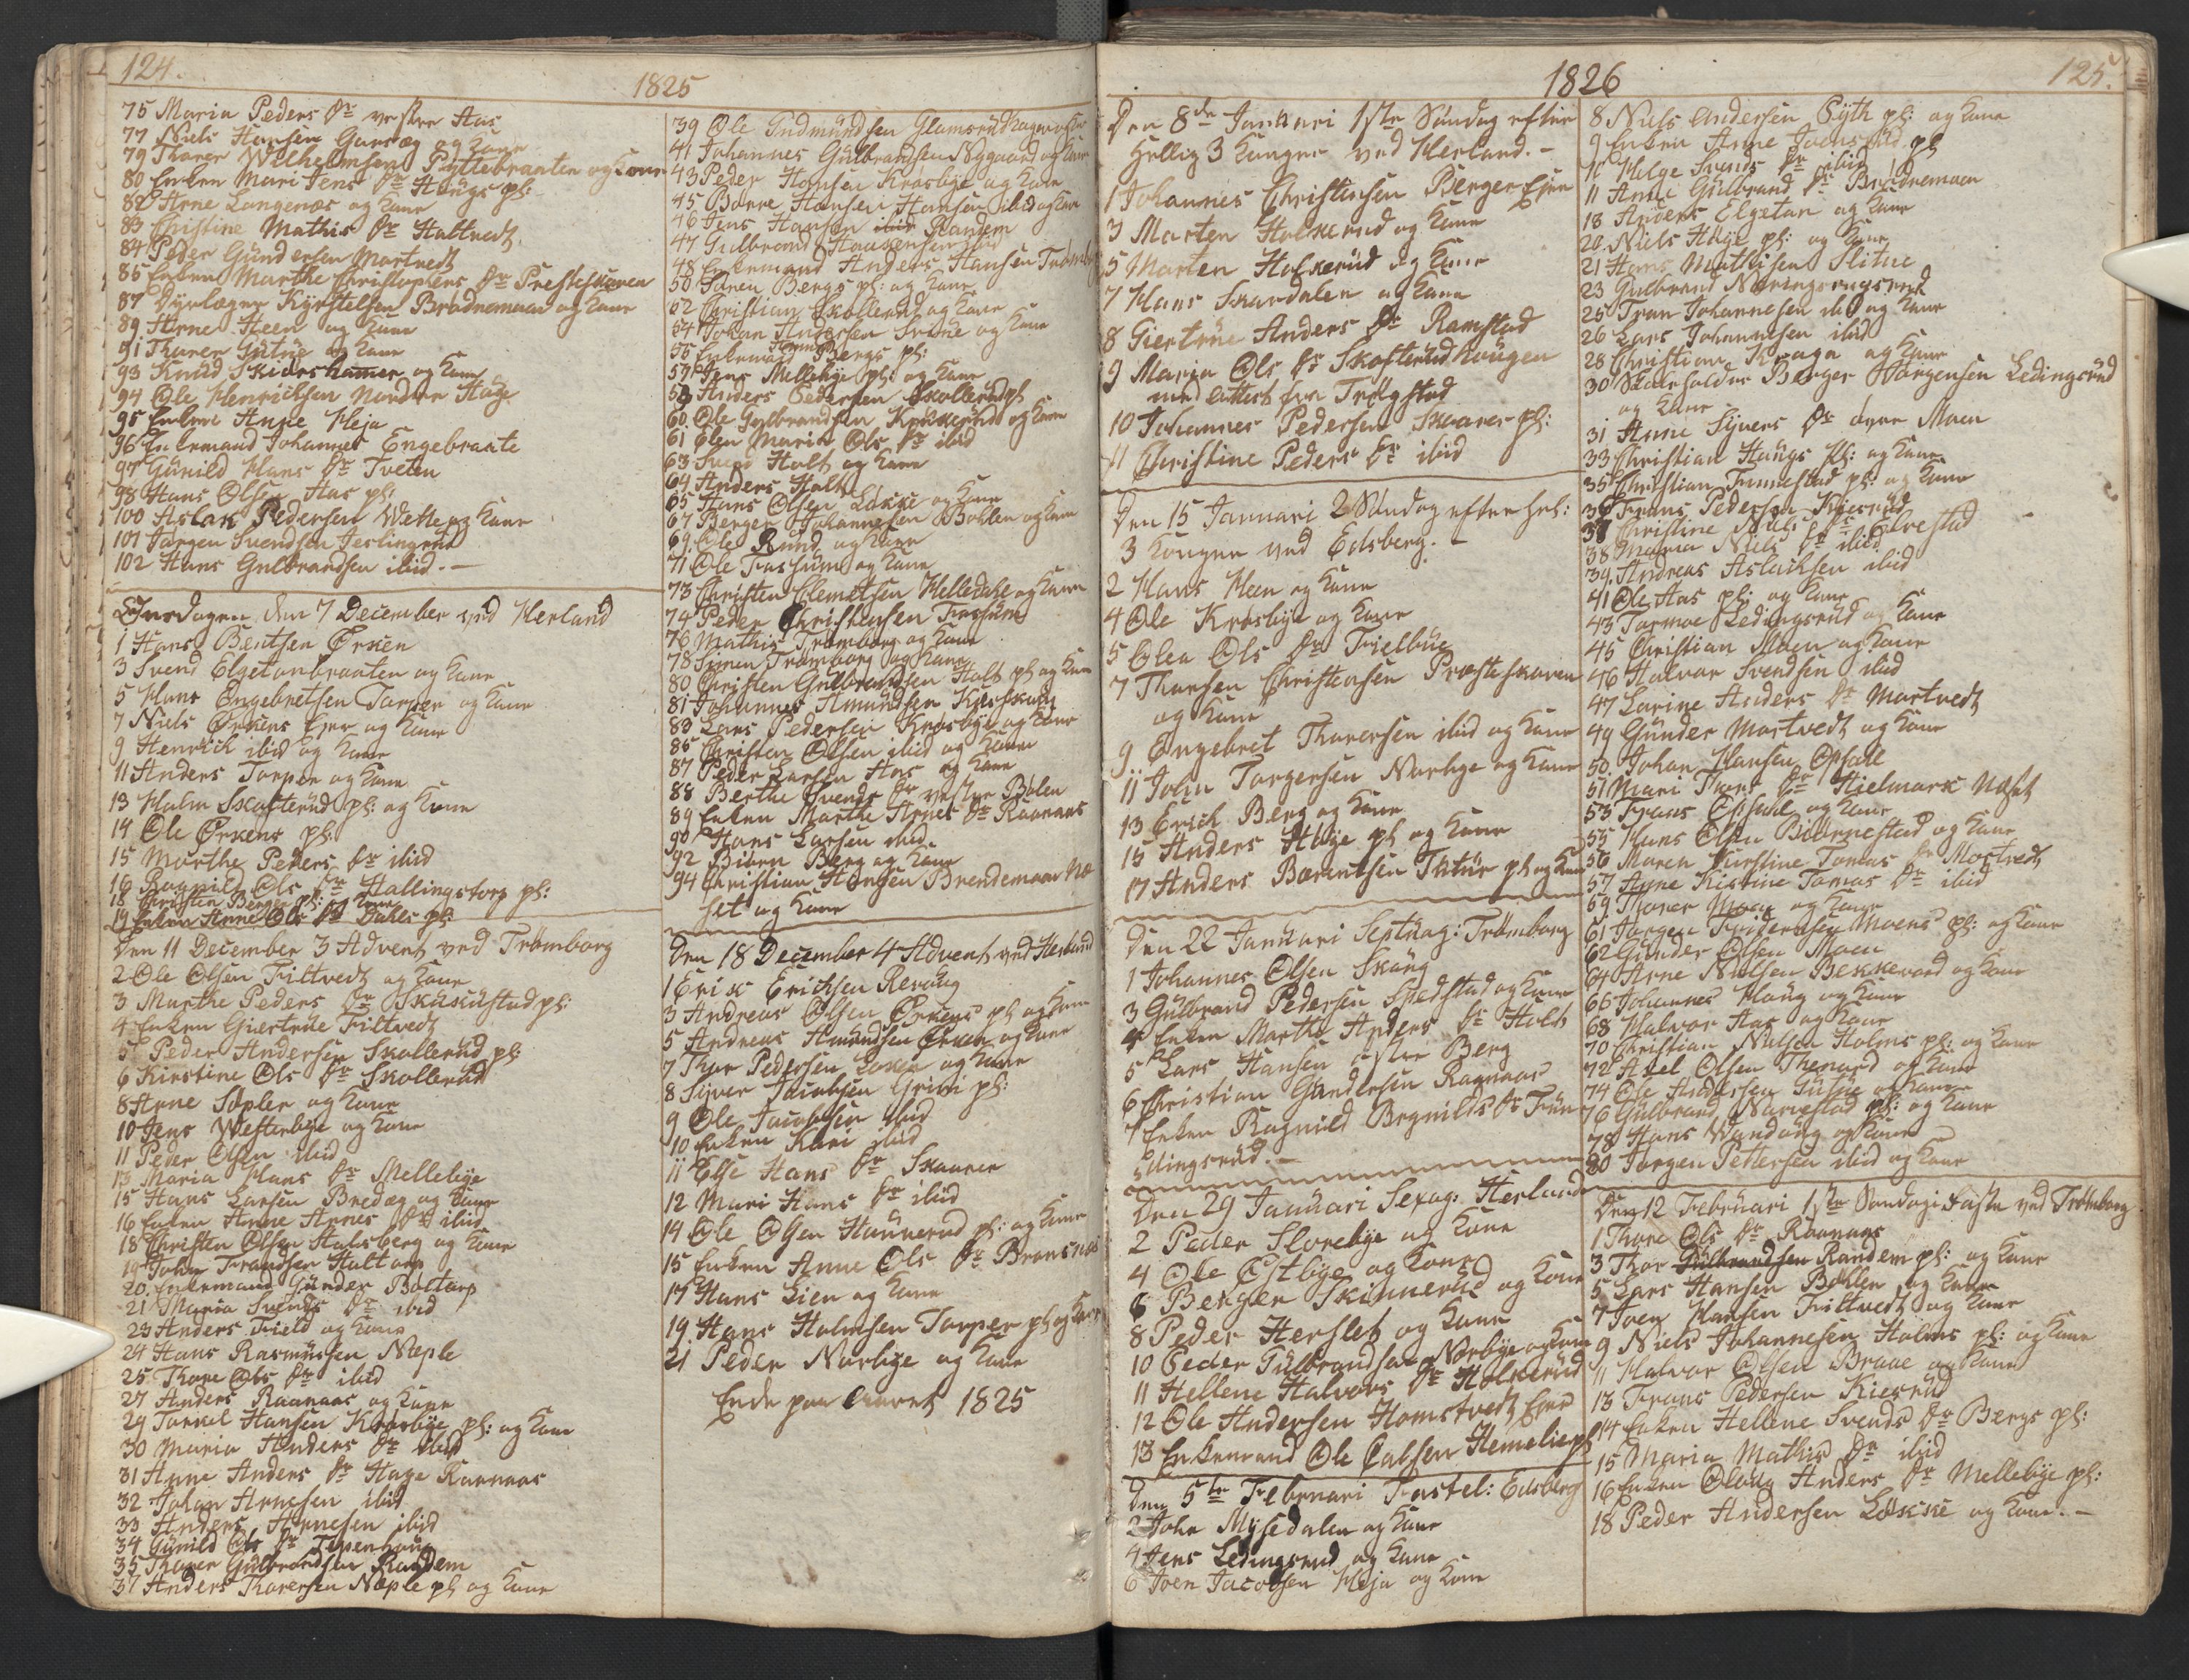 124.
1825
75 Maria Peders Dr vestre Aas
77 Niels Hansen Garsæg og Kone
79 Thorer Wilhelmsen Pyttebraaten og Kone
80 Enken Mari Jens Dr Haugs pl:
82 Arne Langenæs og Kone
83 Christine Mathis Dr Haltvedt
84 Peder Gundersen Mortvedt
85 Enken Marthe Christophers Dr Presteskoven
87 Dyrlægen Kyrstelsen Brødnemoen og Kone
89 Arne Heen og Kone
91 Thorer Gutue og Kone
93 Knud Skidshamer og Kone
94 Ole Henrichsen Nordre Hage
95 Enken Anne Heja
96 Enkemand Johannes Engebraate
97 Gunild Hans Dr Tveten
98 Hans Olsen Aas pl:
100 Aslak Pedersen Wette og Kone
101 Jørgen Svendsen Jeslingrud
102 Hans Gulbrandsen ibid. –
Onsdagen den 7 December ved Herland
1 Hans Bentsen Ørken
3 Svend Elgetonbraaten og Kone
5 Hans Engebretsen Torper og Kone
7 Niels Ørkens Eier og Kone
9 Henrich ibid og Kone
11 Anders Torper og Kone
13 Holm Skofterud pl: og Kone
14 Ole Ørkens pl:
15 Marthe Peders Dr ibid
16 Ragnild Ols Dr Hallingstorp pl:
18 Christen Berger pl: og Kone
19 Enken Anne Ols Dr Dahls pl:
Den 11 December 3 Advent ved Trømborg
2 Ole Olsen Filtvedt og Kone
3 Marthe Peders Dr Skusustad pl:
4 Enken Giertrue Filtvedt
5 Peder Andersen Skollerud pl:
6 Kirstine Ols Dr Skollerud
8 Arne Sopler og Kone
10 Jens Westerbye og Kone
11 Peder Olsen ibid
13 Maria Hans Dr Mellebye
15 Hans Larsen Bredæg og Kone
16 Enken Anne Arnes Dr ibid
18 Christen Olsen Halsberg og Kone
19 John Frandsen Hultorp
20. Enkemand Gunder Boltorp
21 Maria Svends Dr ibid
23 Anders Field og Kone
24 Hans Rasmussen Næple
25 Thore Ols Dr ibid
27 Anders Raanaas og Kone
29 Torkel Hansen Krosbye pl: og Kone
30 Maria Anders Dr ibid
31 Anne Anders Dr Hage Raanaas
32 Johan Arnesen ibid
33 Anders Arnesen ibid
34 Gunild Ols Dr
35 Thorer Gulbrandsen Randem
37 Anders Thorersen Næple pl: og Kone
39 Ole Gudmundsen Glamsrudhagen og Kone
41 Johannes Gulbrandsen Nygaard og Kone
43 Peder Hansen Krosbye og Kone
45 Børre Hansen Hansen ibid og Kone
46 Jens Hansen ibid Randem
47 Gulbrand Haagensen ibid
48 Enkemand Anders Hansen Trømborg
50 Søren Bergs pl: og Kone
52 Christian Skollerud og Kone
54 Johan Andersen og Kone
55 Enkemand Bergs pl:
57 Jens Mellebye pl: og Kone
58 Anders Pedersen Skollerud pl
60. Ole Gulbrandsen Krakkerud og Kone
61 Olea Maria Ols Dr ibid
63 Svend Holt og Kone
64 Anders Holt
65 Hans Olsen Løkke og Kone
67 Berger Johannesen Bohlen og Kone
69. Ole Rund og Kone
71 Ole Fossum og Kone
73 Christen Clemetsen Helledale og Kone
74 Peder Christensen Fossum
76 Mathis Trømborg og Kone
78 Simen Trømborg og Kone
80 Christen Gulbrandsen Holt pl og Kone
81 Johannes Amundsen Kirkerud
83 Lars Pedersen Krosbye og Kone
85 Christen Olsen ibid og Kone
87 Peder Larsen Aas og Kone
88 Berthe Svends Dr vestre Bølen
89 Enken Marthe Arnes Dr Raanaas
90 Hans Larsen ibid
92 Biørn Berg og Kone
94 Christian Hansen Brendemoen Næ
set og Kone
Den 18 December 4 Advent ved Herland
1 Erik Erichsen Revaug
3 Andreas Olsen Ørkens pl og Kone
5 Andreas Amundsen Ørken og Kone
7 Thor Pedersen Løken og Kone
8 Syver Jacobsen Grini pl:
9 Ole Jacobsen ibid
10 Enken Kari ibid
11 Else Hans Dr Skaarer
12 Mari Hans Dr ibid
14 Ole Olsen Hunnerud pl: og Kone
15 Enken Anne Ols Dr Bronsnæs
17 Hans Lien og Kone
19. Hans Holmsen Torper pl og Kone
21 Peder Norbye og Kone
Ende paa Aaret 1825
1826
125.
Den 8de Januari 1ste Søndag efter
Hellig 3 Konger ved Herland. –
1 Johannes Christensen Berger Eier
3 Morten Holkerud og Kone
5 Morten Holkerud og Kone
7 Hans Skardalen og Kone
8 Giertrue Anders Dr Ramstad
9 Maria Ols Dr Skofterudhaugen
med Attest fra Trøgstad
10 Johannes Pedersen Skaarer pl:
11 Christine Peders Dr ibid
Den 15 Januari 2 Søndag efter hel:
3 Konger ved Edsberg. –
2 Hans Heen og Kone
4 Ole Krosbye og Kone
5 Olea Ols Dr Fielbue
7 Thorsen Christensen Præsteskoven
og Kone
9 Engebret Thoresen ibid og Kone
11 John Torgersen Norbye og Kone
13 Erich Berg og Kone
15 Anders Høye pl og Kone
17 Anders Barentsen Tutur pl og Kone
Den 22 Januari Septuag: Trømborg
1 Johannes Olsen Skaug
3 Gulbrand Pedersen Spedstad og Kone
4 Enken Marthe Anders Dr Holt
5 Lars Hansen østre Berg
6 Christian Gundersen Raanaas
7 Enken Ragnild Brynilds Dr Trøm
lingsrud. –
Den 29 Januari Sexag: Herland
2 Peder Slorebye og Kone
4 Ole Østbye og Kone
6 Berger Skinnerud og Kone
8 Peder Herslet og Kone
10 Peder Gulbrandsen Norbye og Kone
11 Hellene Halvors Dr Holkerud
12 Ole Andersen Homstvedt Eier
13 Enkemand Ole Jabsen Hemelie pl
Den 5te Februari Fastel: Edsberg
2 John Mysedalen og Kone
4 Jens Ledingsrud og Kone
6 Joen Jacobsen Heja og Kone
8 Niels Andersen Gyth pl: og Kone
9 Enken Anne Joensrud pl
10 Helge Svends Dr ibid
11 Anne Gulbrand Dr Brødnemoen
18 Anders Elgetun og Kone
20. Niels Høye pl: og Kone
21 Hans Mathisen Slitue
23 Gulbrand Næringsrud
25 Tron Johannesen ibid og Kone
26 Lars Johannesen ibid
28 Christian Kraga og Kone
30 Skoleholder Børger Jørgensen Ledingsrud
og Kone
31 Anne Syvers Dr øvre Moen
33 Christian Haugs pl: og Kone
35 Christian Finnestad pl: og Kone
36 Frans Pedersen Kiesrud
37 Christine Niels Dr Elvestad
38 Maria Niels Dr ibid
39. Andreas Aslachsen ibid
41 Ole Aas pl: og Kone
43 Tormoe Ledingsrud og Kone
45 Christian Moen og Kone
46 Halvor Svendsen ibid
47 Larine Anders Dr Mortvedt
49 Gunder Mortvedt og Kone
50. Johan Hansen Opsal
51 Mari Dr Hielmark Næset
53 Frans Opsal og Kone
55 Hans Olsen Biørnestad og Kone
56 Maren Kirstine Tomas Dr Mortvedt
57 Anne Kistine Tomas Dr ibid
59 Thorer Moen og Kone
61 Jørgen Fridericksen Moens pl: og Kone
62 Gunder Olsen Moen
64 Arne Nielsen Bekkevold og Kone
66 Johannes Haug og Kone
68 Halvor Aas og Kone
70 Christian Nielsen Holms pl: og Kone
72 Axel Olsen Thorud og Kone
74 Ole Andersen Gutue og Kone
76 Gulbrand Narvestad pl: og Kone
78 Hans Wandaug og Kone
80 Jørgen Pettersen ibid og Kone
Den 12 Februari 1ste Søndag i Faste ved Trømborg
1 Thore Ols Dr Raanaas
3 Thor Gulbrandsen Randem pl: og Kone
5 Lars Hansen Bøhlen og Kone
7 Joen Hansen Filtvedt og Kone
9 Niels Johannesen Holms pl: og Kone
11 Halvor Olsen Braae og Kone
13 Frans Pedersen Kiesrud
14 Enken Hellene Svends Dr Bergs pl:
15 Maria Mathis Dr ibid
16 Enken Oloug Anders Dr Mellebye pl:
18 Peder Andersen Løkke og Kone. –